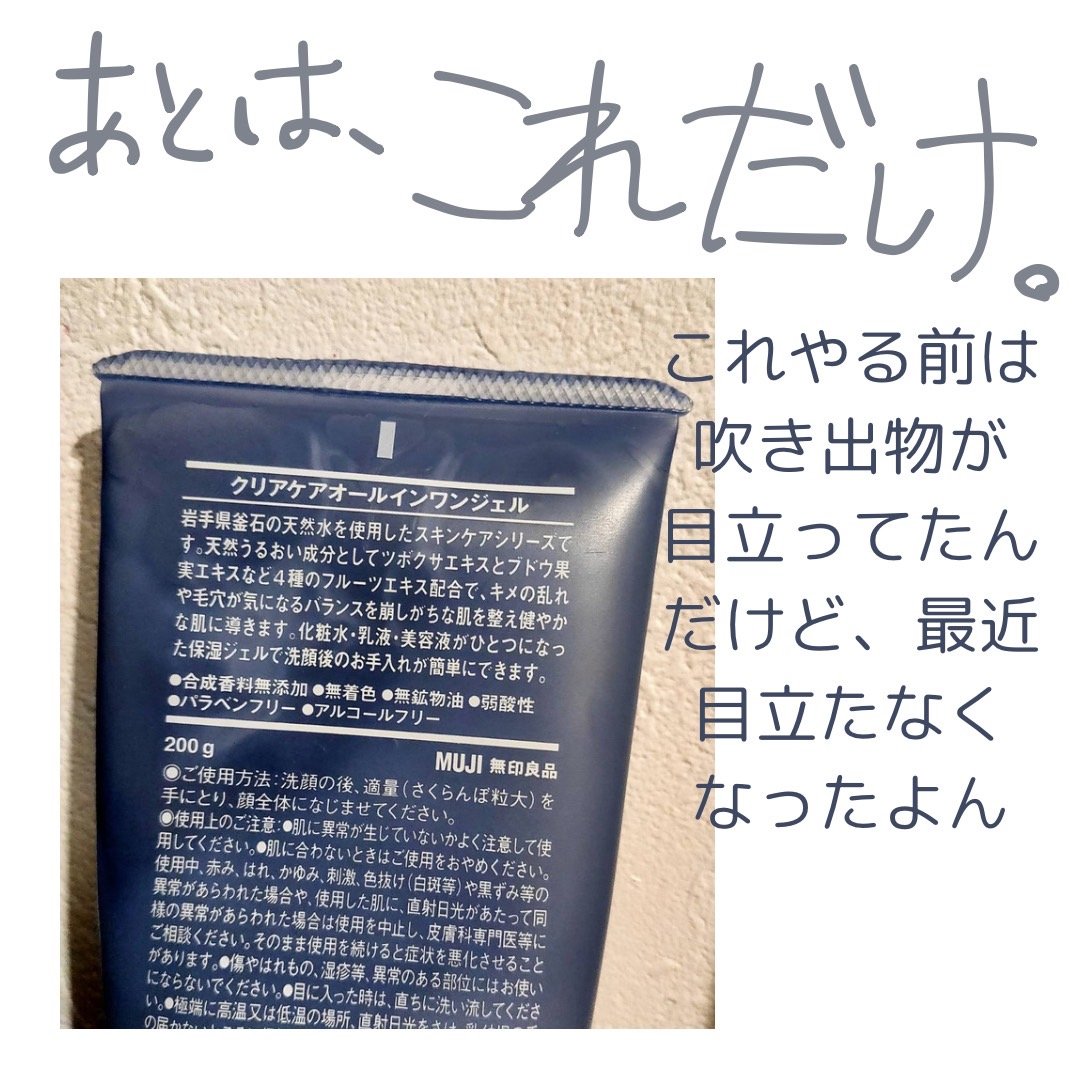 あとは、これだけ。
これやる前は
吹き出物が
目立ってたん
だけど、最近
目立たなく
なったよん
クリアケアオールインワンジェル
岩手県釜石の天然水を使用したスキンケアシリーズで
す。天然うるおい成分としてツボクサエキスとブドウ果
実エキスなど4種のフルーツエキス配合で、キメの乱れ
や毛穴が気になるバランスを崩しがちな肌を整え健やか
な肌に導きます。化粧水・乳液・美容液がひとつになっ
た保湿ジェルで洗顔後のお手入れが簡単にできます。
●合成香料無添加 ●無着色 ●無鉱物油 ●弱酸性
●パラベンフリー ●アルコールフリー
200g MUJI 無印良品
◉ご使用方法:洗顔の後、適量(さくらんぼ粒大)を
手にとり、顔全体になじませてください。
◉使用上のご注意:●肌に異常が生じていないかよく注意して使
用してください。●肌に合わないときはご使用をおやめください。
使用中、赤み、はれ、かゆみ、刺激、色抜け(白斑等)や黒ずみ等の
異常があらわれた場合や、使用した肌に、直射日光があたって同
様の異常があらわれた場合は使用を中止し、皮膚科専門医等に
ご相談ください。そのまま使用を続けると症状を悪化させること
があります。●傷やはれもの、湿疹等、異常のある部位にはお使い
にならないでください。●目に入った時は、直ちに洗い流してくださ
い。●極端に高温又は低温の場所、直射日光をさけ、乳幼児の手
の届かないところに